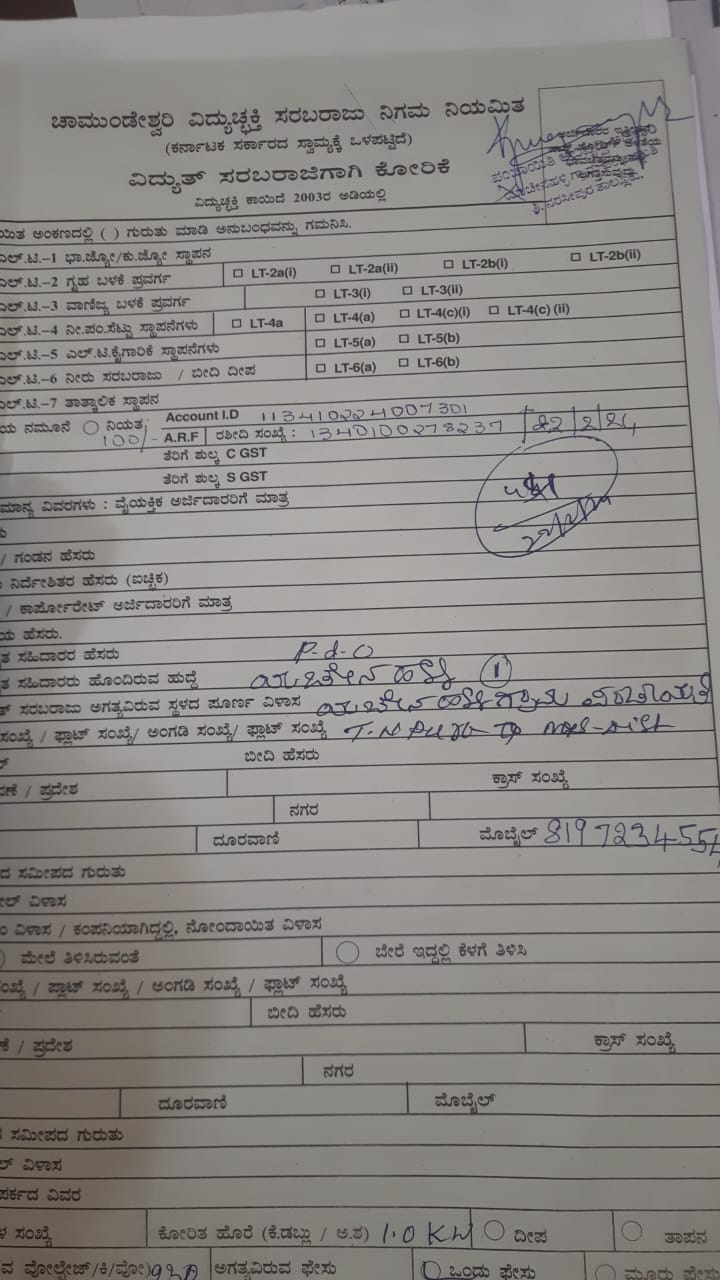 ಚಾಮುಂಡೇಶ್ವರಿ ವಿದ್ಯುಚ್ಛಕ್ತಿ ಸರಬರಾಜು ನಿಗಮ ನಿಯಮಿತ
(ಕರ್ನಾಟಕ ಸರ್ಕಾರದ ಸ್ವಾಮ್ಯಕ್ಕೆ ಒಳಪಟ್ಟಿದೆ)
ವಿದ್ಯುತ್ ಸರಬರಾಜಿಗಾಗಿ ಕೋರಿಕೆ
ವಿದ್ಯುಚ್ಛಕ್ತಿ ಕಾಯಿದೆ 2003ರ ಅಡಿಯಲ್ಲಿ
ಯಿತ ಅಂಕಣದಲ್ಲಿ ( ) ಗುರುತು ಮಾಡಿ ಅನುಬಂಧವನ್ನು ಗಮನಿಸಿ.
ಎಲ್.ಟಿ.-1 ಭಾ.ಜ್ಯೋ/ಕು.ಜ್ಯೋ ಸ್ಥಾಪನ
ಎಲ್.ಟಿ.-2 ಗೃಹ ಬಳಕೆ ಪ್ರವರ್ಗ LT-2a(i) LT-2a(ii) LT-2b(i) LT-2b(ii)
ಎಲ್.ಟಿ.-3 ವಾಣಿಜ್ಯ ಬಳಕೆ ಪ್ರವರ್ಗ LT-3(i) LT-3(ii)
ಎಲ್.ಟಿ.-4 ನೀ.ಪಂ.ಸೆಟ್ಟು ಸ್ಥಾಪನೆಗಳು LT-4a LT-4(a) LT-4(c)(i) LT-4(c) (ii)
ಎಲ್.ಟಿ.-5 ಎಲ್.ಟಿ.ಕೈಗಾರಿಕೆ ಸ್ಥಾಪನೆಗಳು LT-5(a) LT-5(b)
ಎಲ್.ಟಿ.-6 ನೀರು ಸರಬರಾಜು / ಬೀದಿ ದೀಪ LT-6(a) LT-6(b)
ಎಲ್.ಟಿ.-7 ತಾತ್ಕಾಲಿಕ ಸ್ಥಾಪನ
ಯ ನಮೂನೆ ನಿಯತ Account I.D 113410224007301
100/- A.R.F ರಶೀದಿ ಸಂಖ್ಯೆ : 1340100278237 /22/2/24
ತೆರಿಗೆ ಶುಲ್ಕ C GST
ತೆರಿಗೆ ಶುಲ್ಕ S GST
ಮಾನ್ಯ ವಿವರಗಳು : ವೈಯಕ್ತಿಕ ಅರ್ಜಿದಾರರಿಗೆ ಮಾತ್ರ
/ ಗಂಡನ ಹೆಸರು
ನಿರ್ದೇಶಿತರ ಹೆಸರು (ಐಚ್ಛಿಕ)
/ ಕಾರ್ಪೋರೇಟ್ ಅರ್ಜಿದಾರರಿಗೆ ಮಾತ್ರ
ಯ ಹೆಸರು.
ತ ಸಹಿದಾರರ ಹೆಸರು P-d-O
ತ ಸಹಿದಾರರು ಹೊಂದಿರುವ ಹುದ್ದೆ 1
ತ್ ಸರಬರಾಜು ಅಗತ್ಯವಿರುವ ಸ್ಥಳದ ಪೂರ್ಣ ವಿಳಾಸ
ಸಂಖ್ಯೆ / ಫ್ಲಾಟ್ ಸಂಖ್ಯೆ/ ಅಂಗಡಿ ಸಂಖ್ಯೆ/ ಫ್ಲಾಟ್ ಸಂಖ್ಯೆ
ಬೀದಿ ಹೆಸರು
ಣೆ / ಪ್ರದೇಶ ಕ್ರಾಸ್ ಸಂಖ್ಯೆ
ನಗರ
ದೂರವಾಣಿ ಮೊಬೈಲ್ 8197234554
ದ ಸಮೀಪದ ಗುರುತು
ಲ್ ವಿಳಾಸ
ವಿಳಾಸ / ಕಂಪನಿಯಾಗಿದ್ದಲ್ಲಿ, ನೋಂದಾಯಿತ ವಿಳಾಸ
ಮೇಲೆ ತಿಳಿಸಿರುವಂತೆ ಬೇರೆ ಇದ್ದಲ್ಲಿ ಕೆಳಗೆ ತಿಳಿಸಿ
ಸಂಖ್ಯೆ / ಪ್ಲಾಟ್ ಸಂಖ್ಯೆ / ಅಂಗಡಿ ಸಂಖ್ಯೆ / ಫ್ಲಾಟ್ ಸಂಖ್ಯೆ
ಬೀದಿ ಹೆಸರು
ಣೆ / ಪ್ರದೇಶ ಕ್ರಾಸ್ ಸಂಖ್ಯೆ
ನಗರ
ದೂರವಾಣಿ ಮೊಬೈಲ್
ಸಮೀಪದ ಗುರುತು
ಲ್ ವಿಳಾಸ
ಪರ್ಕದ ವಿವರ
ಳ ಸಂಖ್ಯೆ ಕೋರಿತ ಹೊರೆ (ಕೆ.ಡಬ್ಲು / ಅ.ಶ) 1.0 KW ದೀಪ ತಾಪನ
ವ ವೋಲ್ಟೇಜ್/ಕಿ/ವೋ) ಅಗತ್ಯವಿರುವ ಫೇಸು ಒಂದು ಫೇಸು ಮೂರು ಫೇಸು